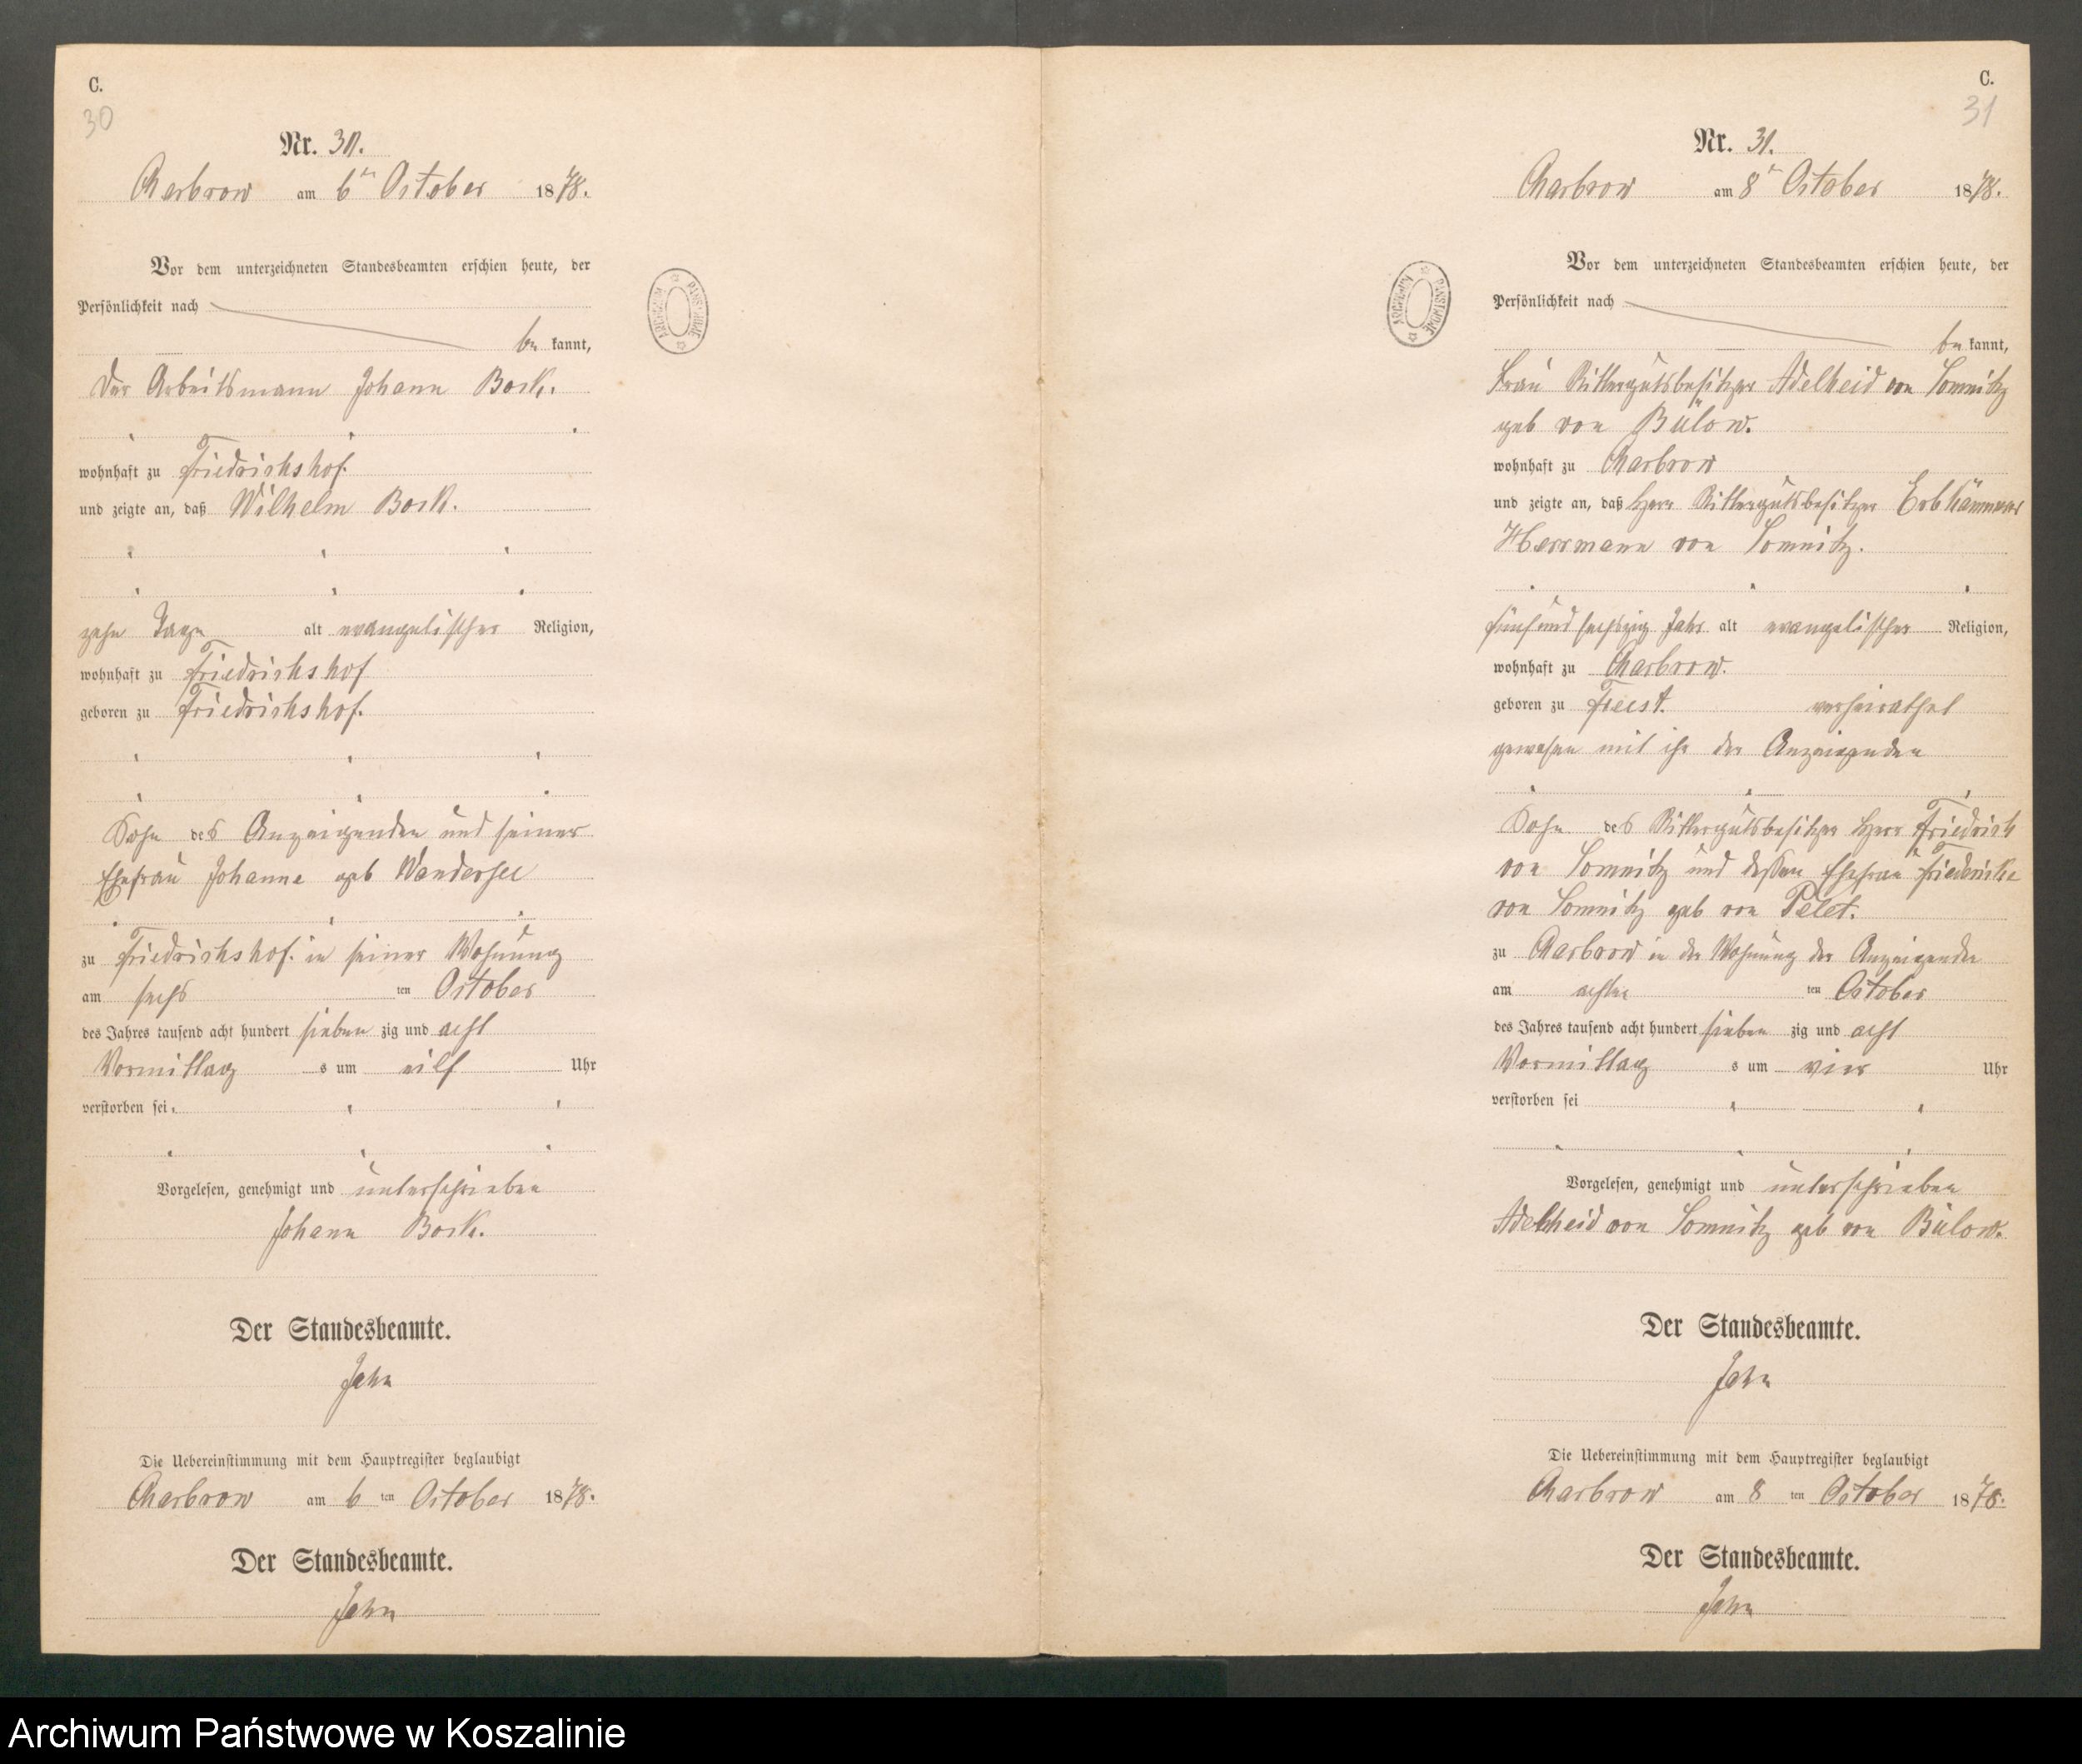 C.
30
Nr. 30.
Charbrow am 6ten October 1878.
Vor dem unterzeichneten Standesbeamten erschien heute, der
Persönlichkeit nach
be kannt,
der Arbeitsmann Johann Bork.
wohnhaft zu Friedrichshof.
und zeigte an, daß Wilhelm Bork.
zehn Tage alt evangelischer Religion,
wohnhaft zu Friedrichshof
geboren zu Friedrichshof.
Sohn des Anzeigenden und seiner
Ehefrau Johanne geb Wandersee
zu Friedrichshof. in seiner Wohnung
am sechs ten October
des Jahres tausend acht hundert sieben zig und acht
Vormittag s um eilf Uhr
verstorben sei.
Vorgelesen, genehmigt und unterschrieben
Johann Bork.
Der Standesbeamte.
Jahn
Die Uebereinstimmung mit dem Hauptregister beglaubigt
Charbrow am 6 ten October 1878.
Der Standesbeamte.
Jahn
ARCHIWUM PAŃSTWOWE
C.
31
Nr. 31.
Charbrow am 8ten October 1878.
Vor dem unterzeichneten Standesbeamten erschien heute, der
Persönlichkeit nach
be kannt,
Frau Rittergutsbesitzer Adelheid von Somnitz
geb von Bülow.
wohnhaft zu Charbrow
und zeigte an, daß Herr Rittergutsbesitzer Erbkämmerer
Herrmann von Somnitz.
fünf und sechszig Jahr alt evangelischer Religion,
wohnhaft zu Charbrow.
geboren zu Freest. verheirathet
gewesen mit ihr der Anzeigenden
Sohn des Rittergutsbesitzer Herr Friedrich
von Somnitz und dessen Ehefrau Friederike
von Somnitz geb von Pelet.
zu Charbrow in der Wohnung der Anzeigenden
am achten ten October
des Jahres tausend acht hundert sieben zig und acht
Vormittag s um vier Uhr
verstorben sei
Vorgelesen, genehmigt und unterschrieben
Adelheid von Somnitz geb von Bülow.
Der Standesbeamte.
Jahn
Die Uebereinstimmung mit dem Hauptregister beglaubigt
Charbrow am 8 ten October 1878.
Der Standesbeamte.
Jahn
ARCHIWUM PAŃSTWOWE
Archiwum Państwowe w Koszalinie